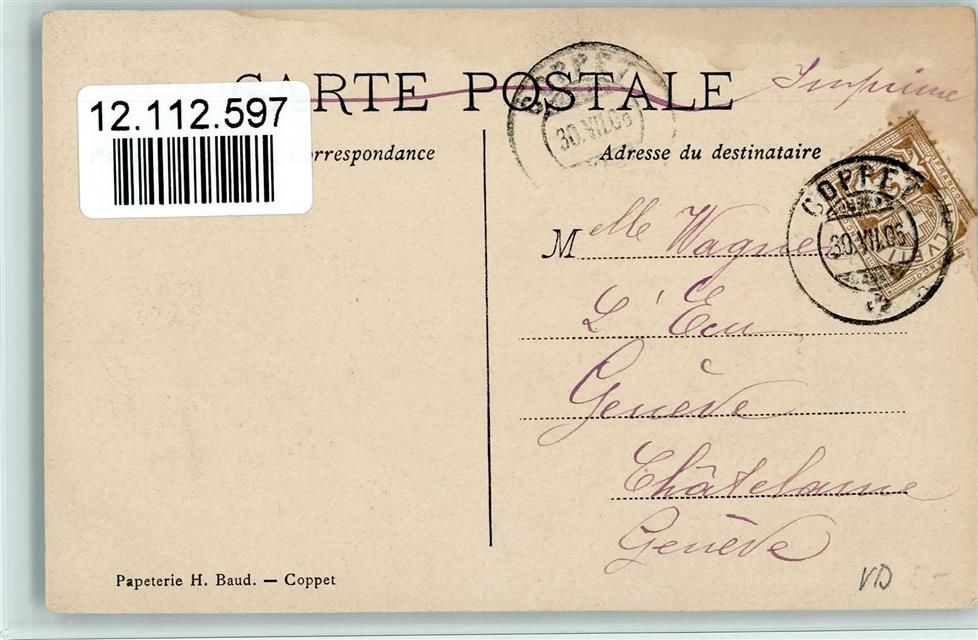 CARTE POSTALE
Imprimé
12.112.597
COPPET
30.VII.06
Correspondance
Adresse du destinataire
COPPET
30.VII.06
HELVETIA
FRANCO
Mlle Wagner
L'Ecu
Genève
Châtelaine
Genève
Papeterie H. Baud. — Coppet
VD